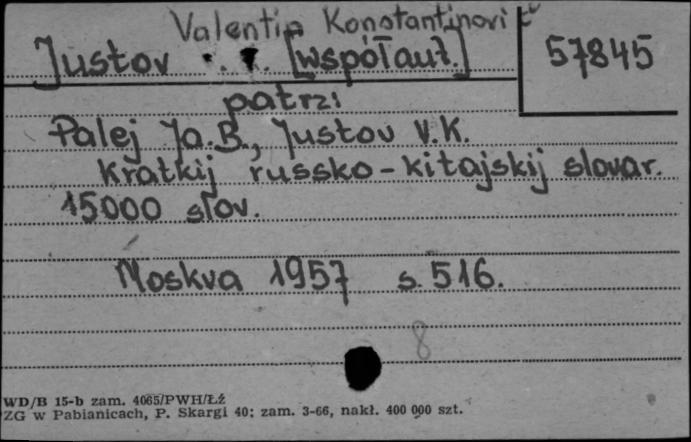 Valentin Konstantinovič
Justov [współaut.]
57845
patrz:
Palej Ja.B., Justov V.K.
Kratkij russko-kitajskij slovar.
15000 slov.
Moskva 1957 s. 516.
8
WD/B 15-b zam. 4065/PWH/Łź
ZG w Pabianicach, P. Skargi 40; zam. 3-66, nakł. 400 000 szt.